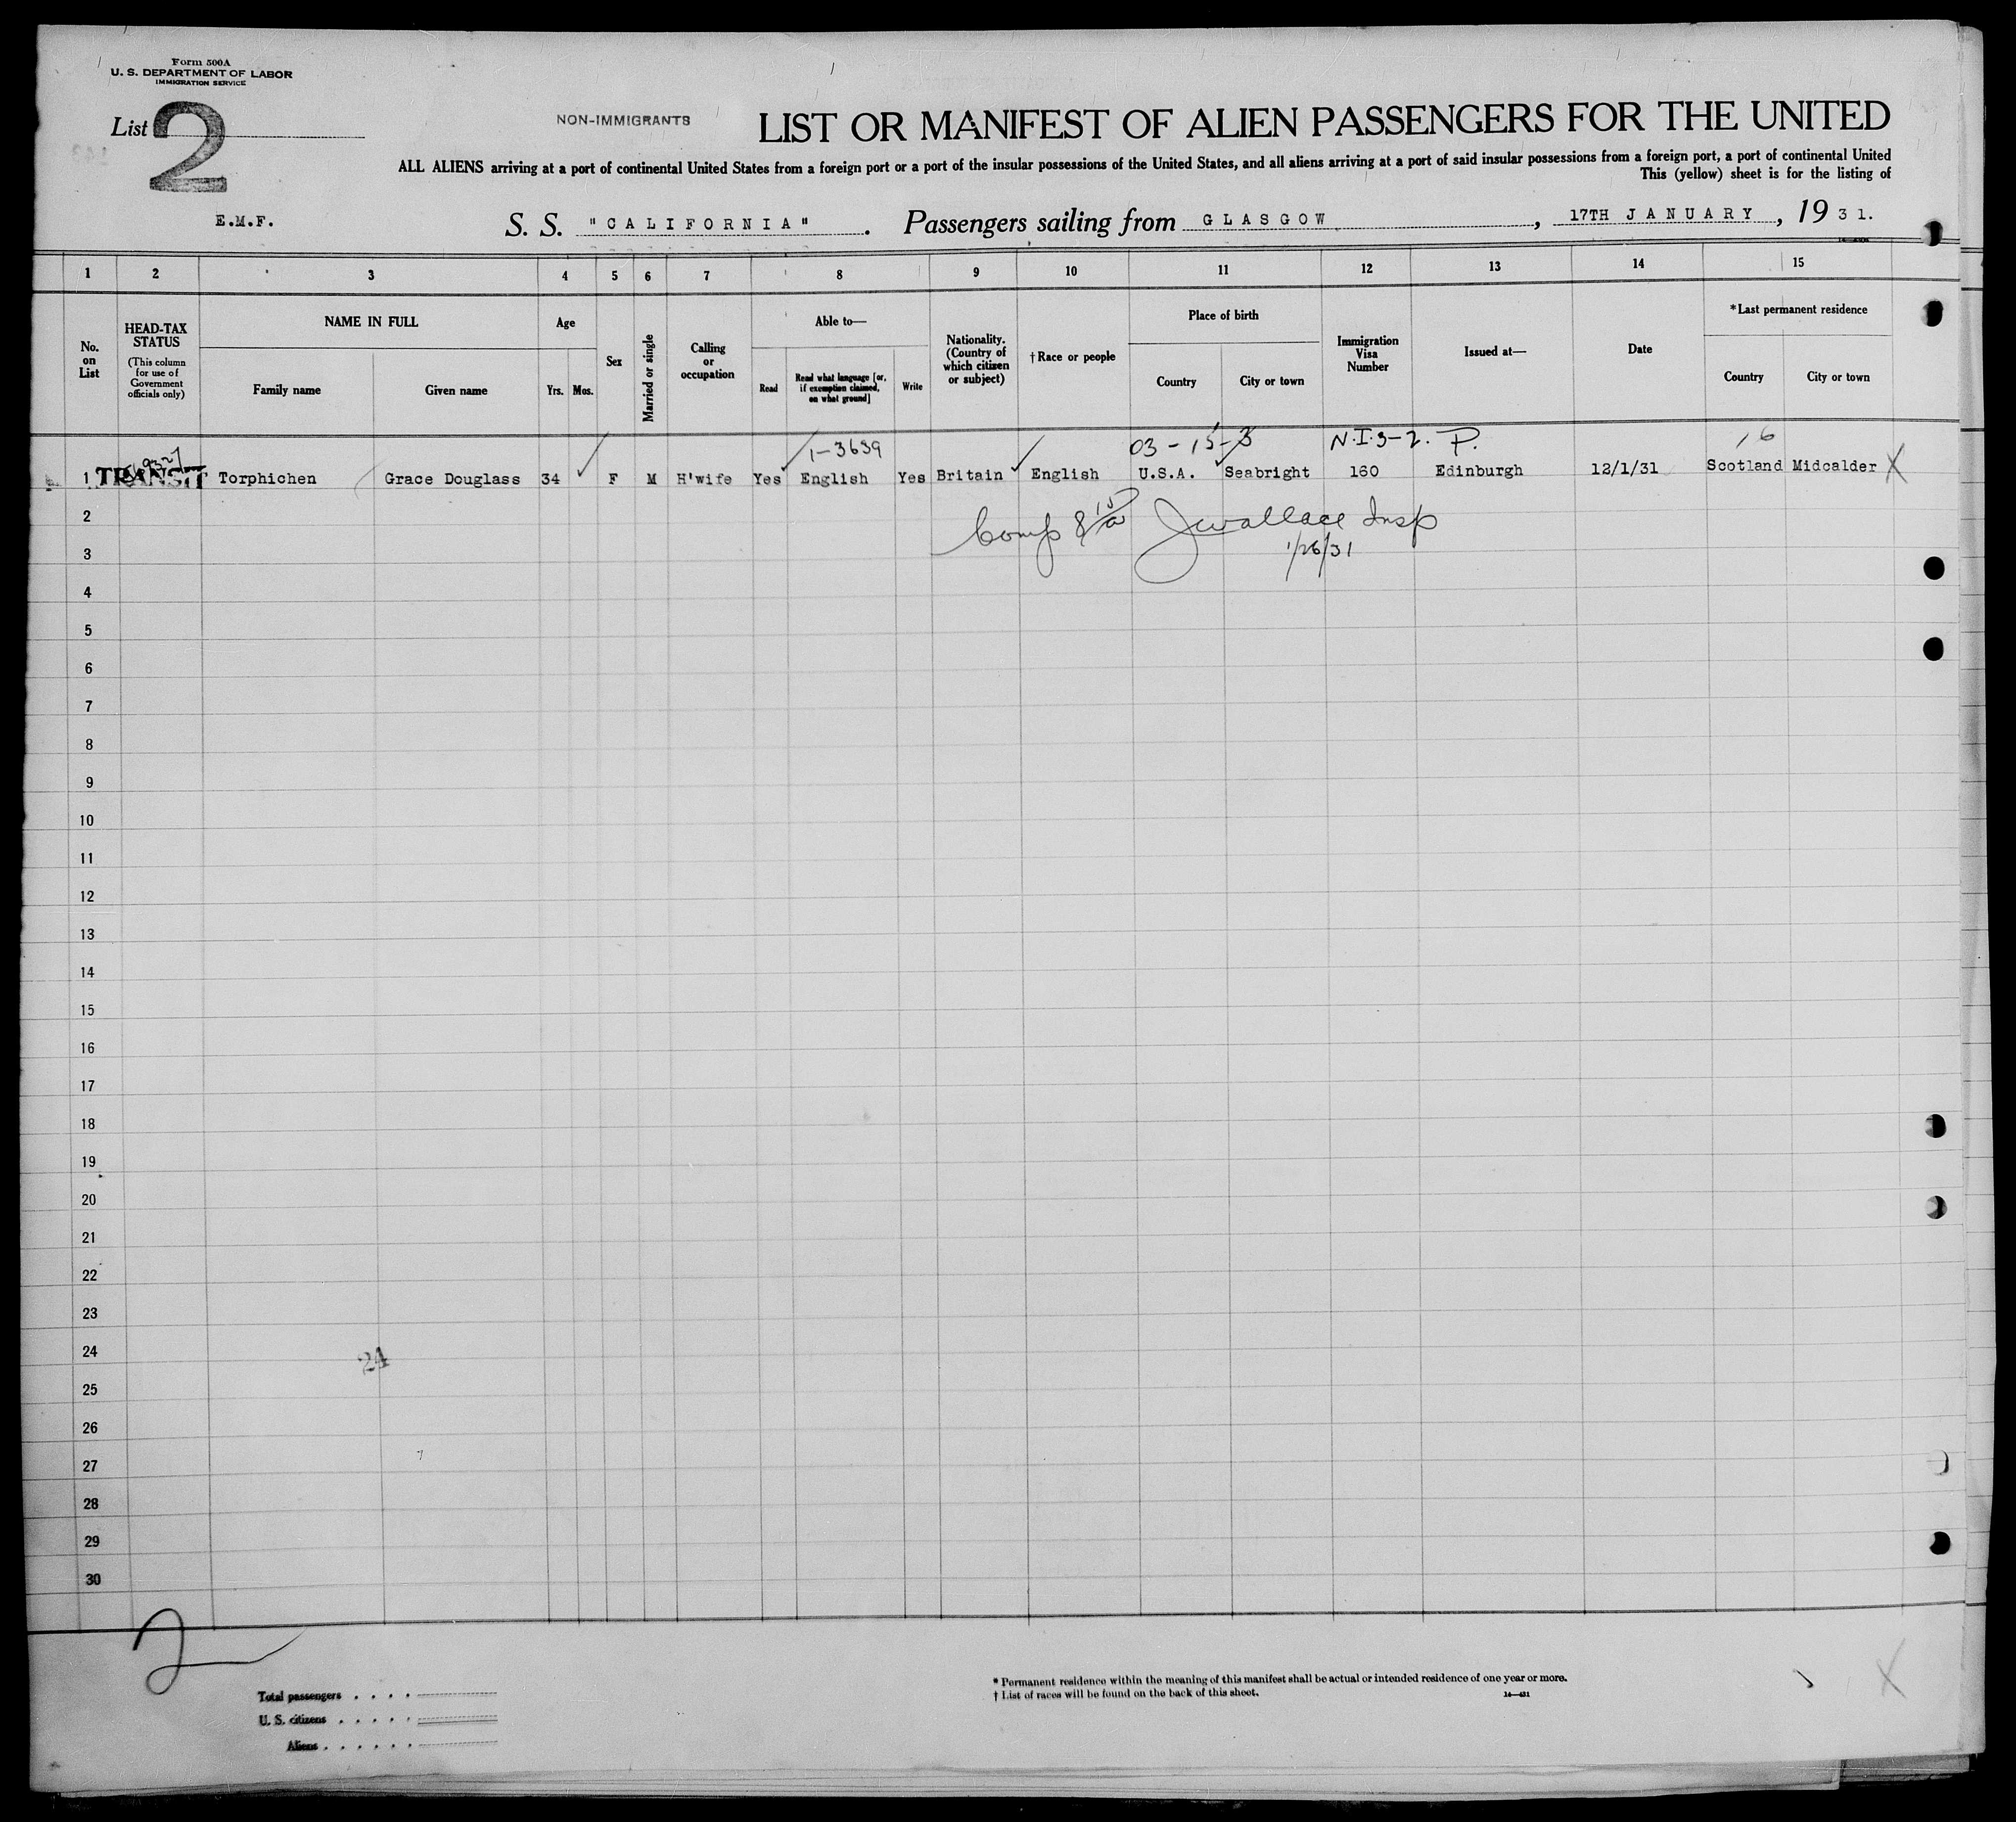 Form 500A
U. S. DEPARTMENT OF LABOR
IMMIGRATION SERVICE
List 2
NON-IMMIGRANTS
LIST OR MANIFEST OF ALIEN PASSENGERS FOR THE UNITED
ALL ALIENS arriving at a port of continental United States from a foreign port or a port of the insular possessions of the United States, and all aliens arriving at a port of said insular possessions from a foreign port, a port of continental United
This (yellow) sheet is for the listing of
E.M.F.
S. S. "CALIFORNIA". Passengers sailing from GLASGOW, 17TH JANUARY, 1931.
1 2 3 4 5 6 7 8 9 10 11 12 13 14 15
No. on List
HEAD-TAX STATUS
(This column for use of Government officials only)
NAME IN FULL
Family name
Given name
Age
Yrs. Mos.
Sex
Married or single
Calling or occupation
Able to—
Read
Read what language [or, if exemption claimed, on what ground]
Write
Nationality. (Country of which citizen or subject)
† Race or people
Place of birth
Country
City or town
Immigration Visa Number
Issued at—
Date
*Last permanent residence
Country
City or town
1-3639 03-15-3 N.I.3-2. P. 16
1 TRANSIT Torphichen Grace Douglass 34 F M H'wife Yes English Yes Britain English U.S.A. Seabright 160 Edinburgh 12/1/31 Scotland Midcalder X
2
Comp 8 JWallace Insp
1/26/31
3
4
5
6
7
8
9
10
11
12
13
14
15
16
17
18
19
20
21
22
23
24
24
25
26
27
28
29
30
2
Total passengers . . . .
U. S. citizens . . . . .
Aliens . . . . . .
* Permanent residence within the meaning of this manifest shall be actual or intended residence of one year or more.
† List of races will be found on the back of this sheet.
14—431
X